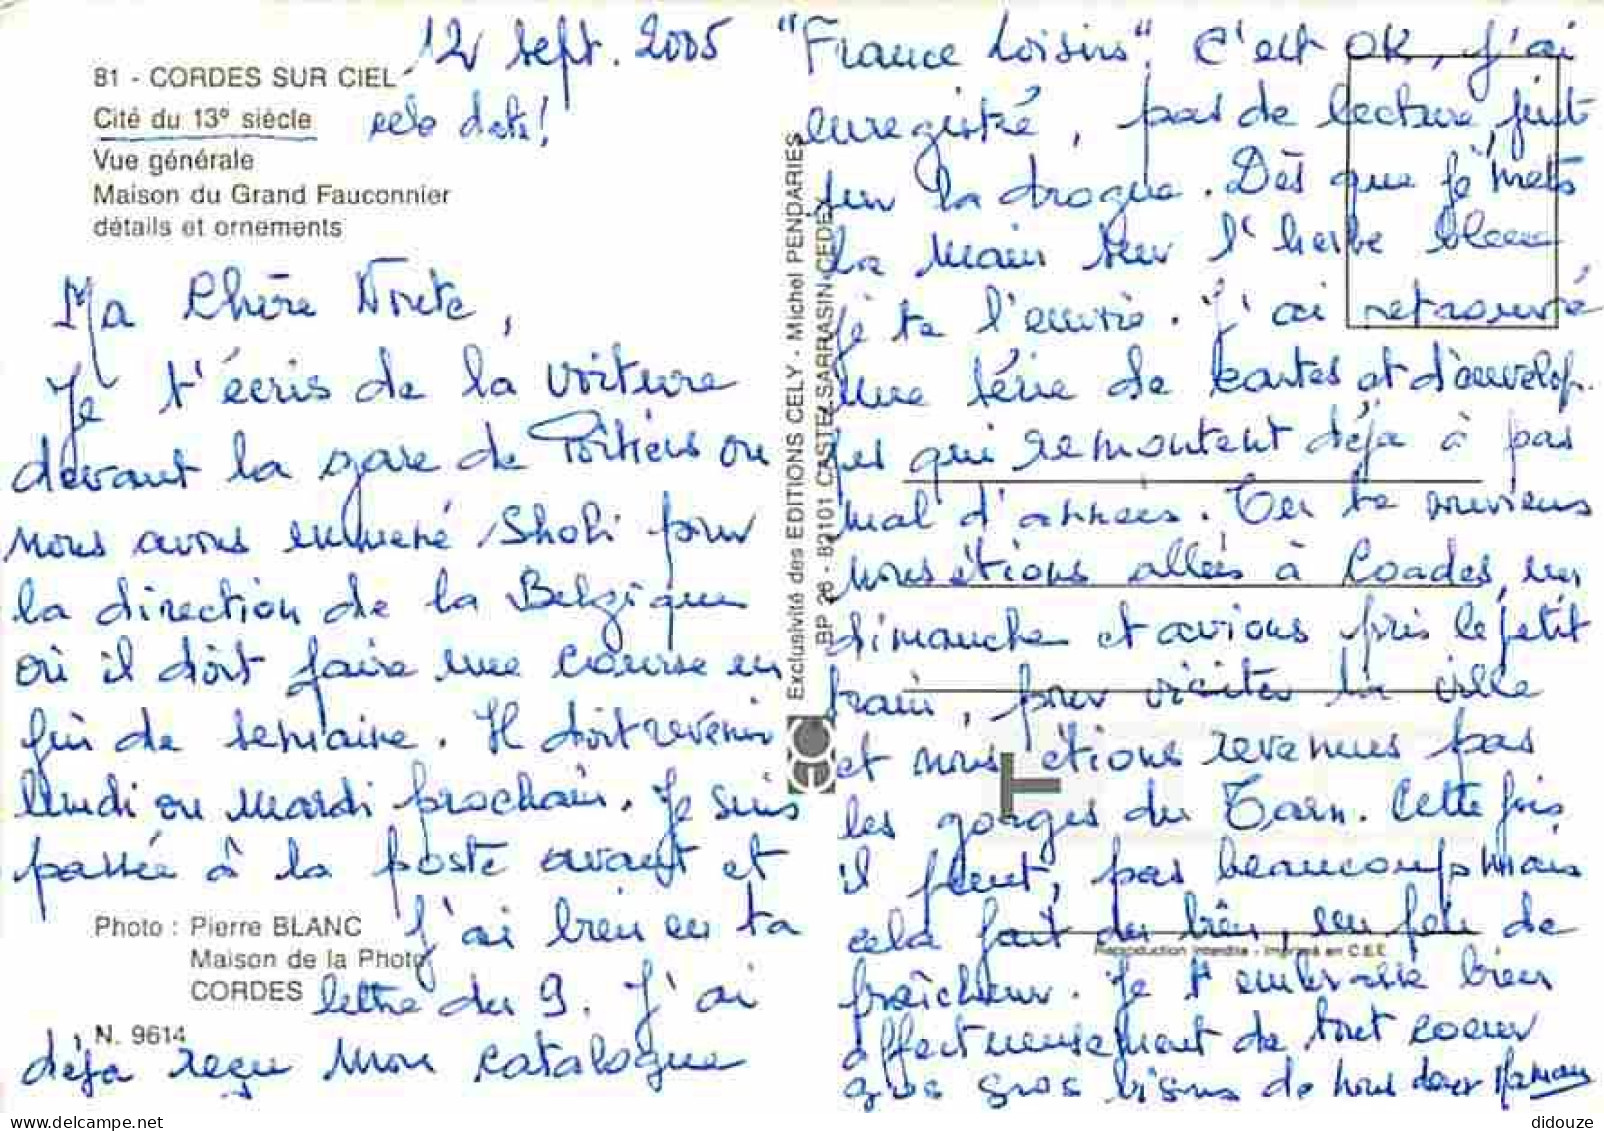 12 sept. 2005
81 - CORDES SUR CIEL
Cité du 13e siècle
cela date!
Vue générale
Maison du Grand Fauconnier
détails et ornements
Ma Chère
Je t'écris de la voiture
devant la gare de Poitiers où
nous avons emmené pour
la direction de la Belgique
où il doit faire une course en
fin de semaine. Il doit revenir
lundi ou mardi prochain. Je suis
passée à la poste avant et
j'ai bien eu ta
lettre du 9. J'ai
déjà reçu mon catalogue
Photo : Pierre BLANC
Maison de la Photo
CORDES
N. 9614
Exclusivité des EDITIONS CELY - Michel PENDARIES
BP 26 - 82101 CASTELSARRASIN CEDEX
"France Loisirs". C'est OK, j'ai
enregistré, pas de lecture, juste
sur la drogue. Dès que je mets
la main sur l'herbe bleue
je te l'envoie. J'ai retrouvé
une série de cartes et d'envelop-
pes qui remontent déjà à pas
mal d'années. Tu te souviens
nous étions allées à Cordes, un
dimanche et avions pris le petit
train, pour visiter la ville
et nous étions revenues pas
les gorges du Tarn. Cette fois
il pleut, pas beaucoup mais
cela fait du bien, un peu de
fraîcheur. Je t'embrasse bien
affectueusement de tout coeur
gros gros bisous de nous deux Maman
Reproduction interdite - Imprimé en C.E.E.
didouze